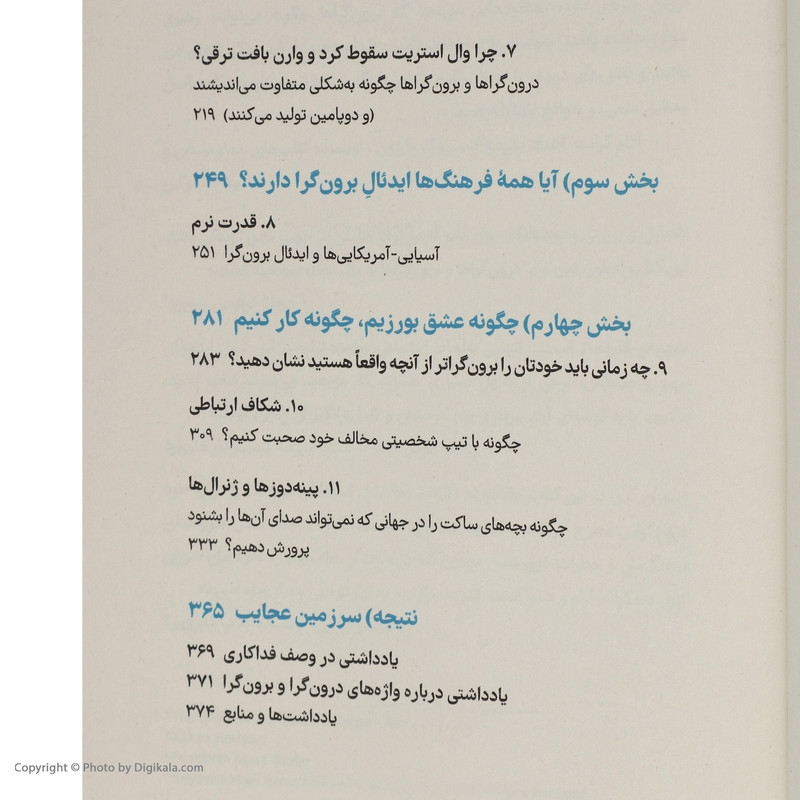 ۷. چرا وال استریت سقوط کرد و وارن بافت ترقی؟
درون‌گراها و برون‌گراها چگونه به‌شکلی متفاوت می‌اندیشند
(و دوپامین تولید می‌کنند) ۲۱۹
بخش سوم) آیا همهٔ فرهنگ‌ها ایدئالِ برون‌گرا دارند؟ ۲۴۹
۸. قدرت نرم
آسیایی-آمریکایی‌ها و ایدئال برون‌گرا ۲۵۱
بخش چهارم) چگونه عشق بورزیم، چگونه کار کنیم ۲۸۱
۹. چه زمانی باید خودتان را برون‌گراتر از آنچه واقعاً هستید نشان دهید؟ ۲۸۳
۱۰. شکاف ارتباطی
چگونه با تیپ شخصیتی مخالف خود صحبت کنیم؟ ۳۰۹
۱۱. پینه‌دوزها و ژنرال‌ها
چگونه بچه‌های ساکت را در جهانی که نمی‌تواند صدای آن‌ها را بشنود
پرورش دهیم؟ ۳۳۳
نتیجه) سرزمین عجایب ۳۶۵
یادداشتی در وصف فداکاری ۳۶۹
یادداشتی درباره واژه‌های درون‌گرا و برون‌گرا ۳۷۱
یادداشت‌ها و منابع ۳۷۴
Copyright © Photo by Digikala.com